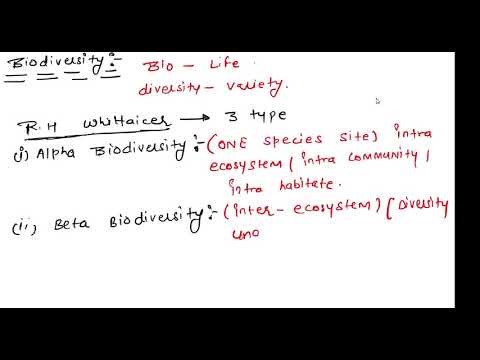 Biodiversity :-
Bio - Life.
diversity - variety.
R.H Whittaicer → 3 type
(i) Alpha Biodiversity :- (ONE species site) intra
ecosystem / intra community /
intra habitate.
(ii) Beta Biodiversity :- (inter - ecosystem) [Diversity
uno